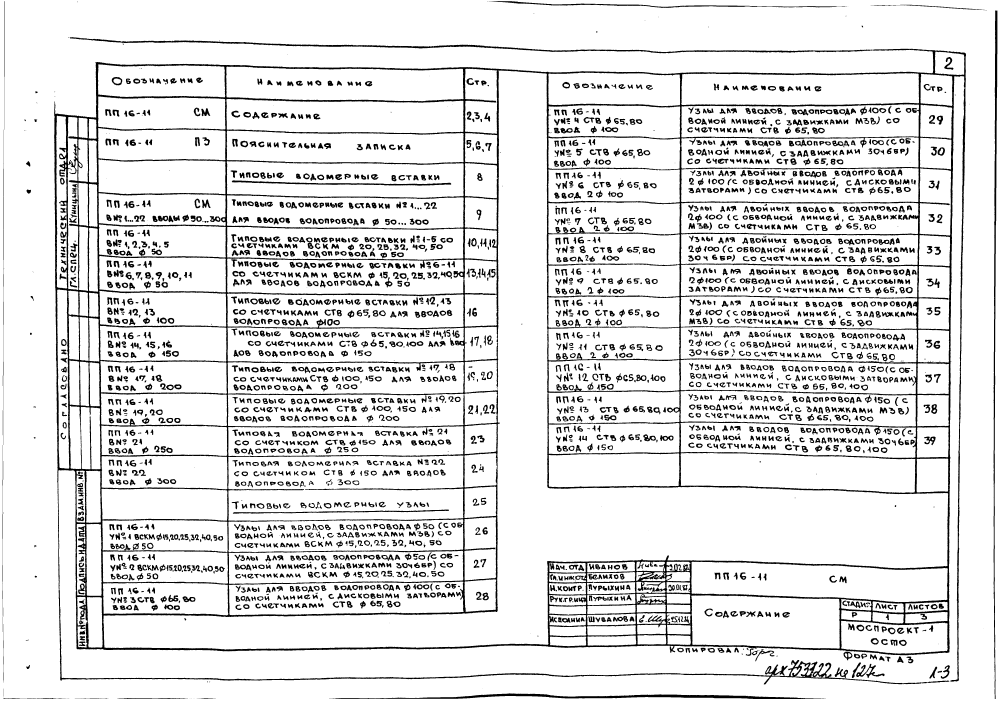 2
Обозначение Наименование Стр.
ПП 16-11 СМ Содержание 2,3,4
ПП 16-11 ПЗ Пояснительная записка 5,6,7
Типовые водомерные вставки 8
ПП 16-11 СМ Типовые водомерные вставки №1...22
ВN°1...22 вводы ф50...300 для вводов водопровода ф 50...300 9
ПП 16-11
ВN° 1,2,3,4,5
Ввод ф 50
Типовые водомерные вставки №1-5 со
счетчиками ВСКМ ф 20,25,32,40,50
для вводов водопровода ф50
10,11,12
ПП 16-11
ВN°6,7,8,9,10,11
Ввод ф 50
Типовые водомерные вставки №6-11
со счетчиками ВСКМ ф 15,20,25,32,40,50
для вводов водопровода ф 50
13,14,15
ПП 16-11
ВN° 12,13
Ввод ф 100
Типовые водомерные вставки №12,13
со счетчиками СТВ ф65,80 для вводов
водопровода ф100
16
ПП 16-11
ВN° 14,15,16
Ввод ф 150
Типовые водомерные вставки №14,15,16
со счетчиками СТВ ф65,80,100 для вво-
дов водопровода ф 150
17,18
ПП 16-11
ВN° 17,18
Ввод ф 200
Типовые водомерные вставки №17,18
со счетчиками СТВ ф100,150 для вводов
водопровода ф 200
19,20
ПП 16-11
ВN° 19,20
Ввод ф 200
Типовые водомерные вставки №19,20
со счетчиками СТВ ф100,150 для
вводов водопровода ф 200
21,22
ПП 16-11
ВN° 21
Ввод ф 250
Типовая водомерная вставка №21
со счетчиком СТВ ф150 для вводов
водопровода ф 250
23
ПП 16-11
ВN° 22
Ввод ф 300
Типовая водомерная вставка №22
со счетчиком СТВ ф 150 для вводов
водопровода ф 300
24
Типовые водомерные узлы 25
ПП 16-11
УN°1 ВСКМ ф15,20,25,32,40,50
Ввод ф 50
Узлы для вводов водопровода ф50 (с об-
водной линией, с задвижками МЗВ) со
счетчиками ВСКМ ф 15,20,25,32,40,50
26
ПП 16-11
УN°2 ВСКМ ф15,20,25,32,40,50
Ввод ф 50
Узлы для вводов водопровода ф50 (с об-
водной линией, с задвижками 30ч6БР) со
счетчиками ВСКМ ф 15,20,25,32,40,50
27
ПП 16-11
УN°3 СТВ ф65,80
Ввод ф 100
Узлы для вводов водопровода ф100 (с об-
водной линией, с дисковыми затворами)
со счетчиками СТВ ф 65,80
28
Обозначение Наименование Стр.
ПП 16-11
УN°4 СТВ ф65,80
Ввод ф 100
Узлы для вводов водопровода ф100 (с об-
водной линией, с задвижками МЗВ) со
счетчиками СТВ ф 65,80
29
ПП 16-11
УN° 5 СТВ ф65,80
Ввод ф 100
Узлы для вводов водопровода ф100 (с об-
водной линией, с задвижками 30ч6БР)
со счетчиками СТВ ф 65,80
30
ПП 16-11
УN° 6 СТВ ф 65,80
Ввод 2 ф 100
Узлы для двойных вводов водопровода
2 ф100 (с обводной линией, с дисковыми
затворами) со счетчиками СТВ ф 65,80
31
ПП 16-11
УN° 7 СТВ ф65,80
Ввод 2 ф 100
Узлы для двойных вводов водопровода
2ф100 (с обводной линией, с задвижками
МЗВ) со счетчиками СТВ ф 65,80
32
ПП 16-11
УN° 8 СТВ ф65,80
Ввод 2ф 100
Узлы для двойных вводов водопровода
2ф100 (с обводной линией, с задвижками
30ч6БР) со счетчиками СТВ ф 65,80
33
ПП 16-11
УN° 9 СТВ ф65,80
Ввод 2 ф 100
Узлы для двойных вводов водопровода
2ф100 (с обводной линией, с дисковыми
затворами) со счетчиками СТВ ф 65,80
34
ПП 16-11
УN°10 СТВ ф65,80
Ввод 2ф 100
Узлы для двойных вводов водопровода
2ф100 (с обводной линией, с задвижками
МЗВ) со счетчиками СТВ ф 65,80
35
ПП 16-11
УN° 11 СТВ ф65,80
Ввод 2 ф 100
Узлы для двойных вводов водопровода
2ф100 (с обводной линией, с задвижками
30ч6БР) со счетчиками СТВ ф65,80
36
ПП 16-11
УN° 12 СТВ ф65,80,100
Ввод ф150
Узлы для вводов водопровода ф150 (с об-
водной линией, с дисковыми затворами)
со счетчиками СТВ ф 65,80,100
37
ПП 16-11
УN° 13 СТВ ф65,80,100
Ввод ф150
Узлы для вводов водопровода ф150 (с
обводной линией, с задвижками МЗВ)
со счетчиками СТВ ф 65,80,100
38
ПП 16-11
УN° 14 СТВ ф65,80,100
Ввод ф150
Узлы для вводов водопровода ф150 (с
обводной линией, с задвижками 30ч6БР)
со счетчиками СТВ ф65,80,100
39
Согласовано
Технический отдел
Гл. спец. Куницына
Взам.инв.№
Подпись и дата
Инв.№подл.
Нач. отд. Иванов
Белихов
Н.контр. Пурыхина
Рук.гр.инж Пурыхина
Исполнил Шувалова
ПП 16-11 СМ
Содержание
Стадия Лист Листов
Р 1 3
Моспроект-1
ОСТО
Копировал:
Формат А3
л-3